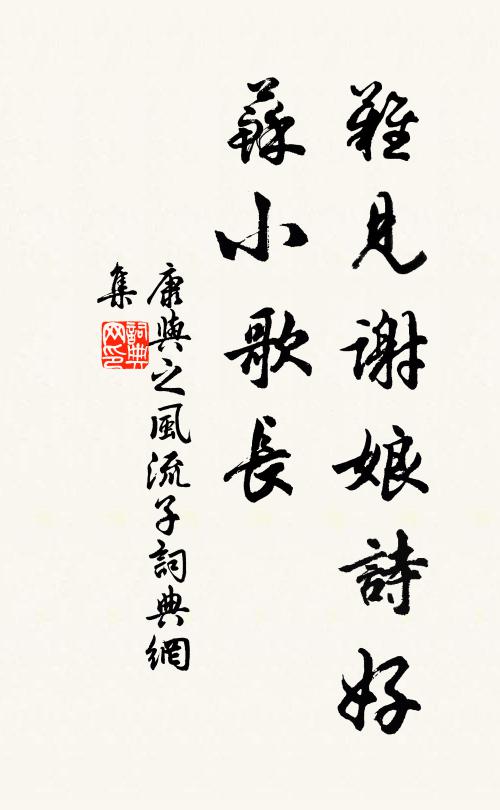 難見謝娘詩好
蘇小歌長
康與之風流子詞典網
集
詞典网印